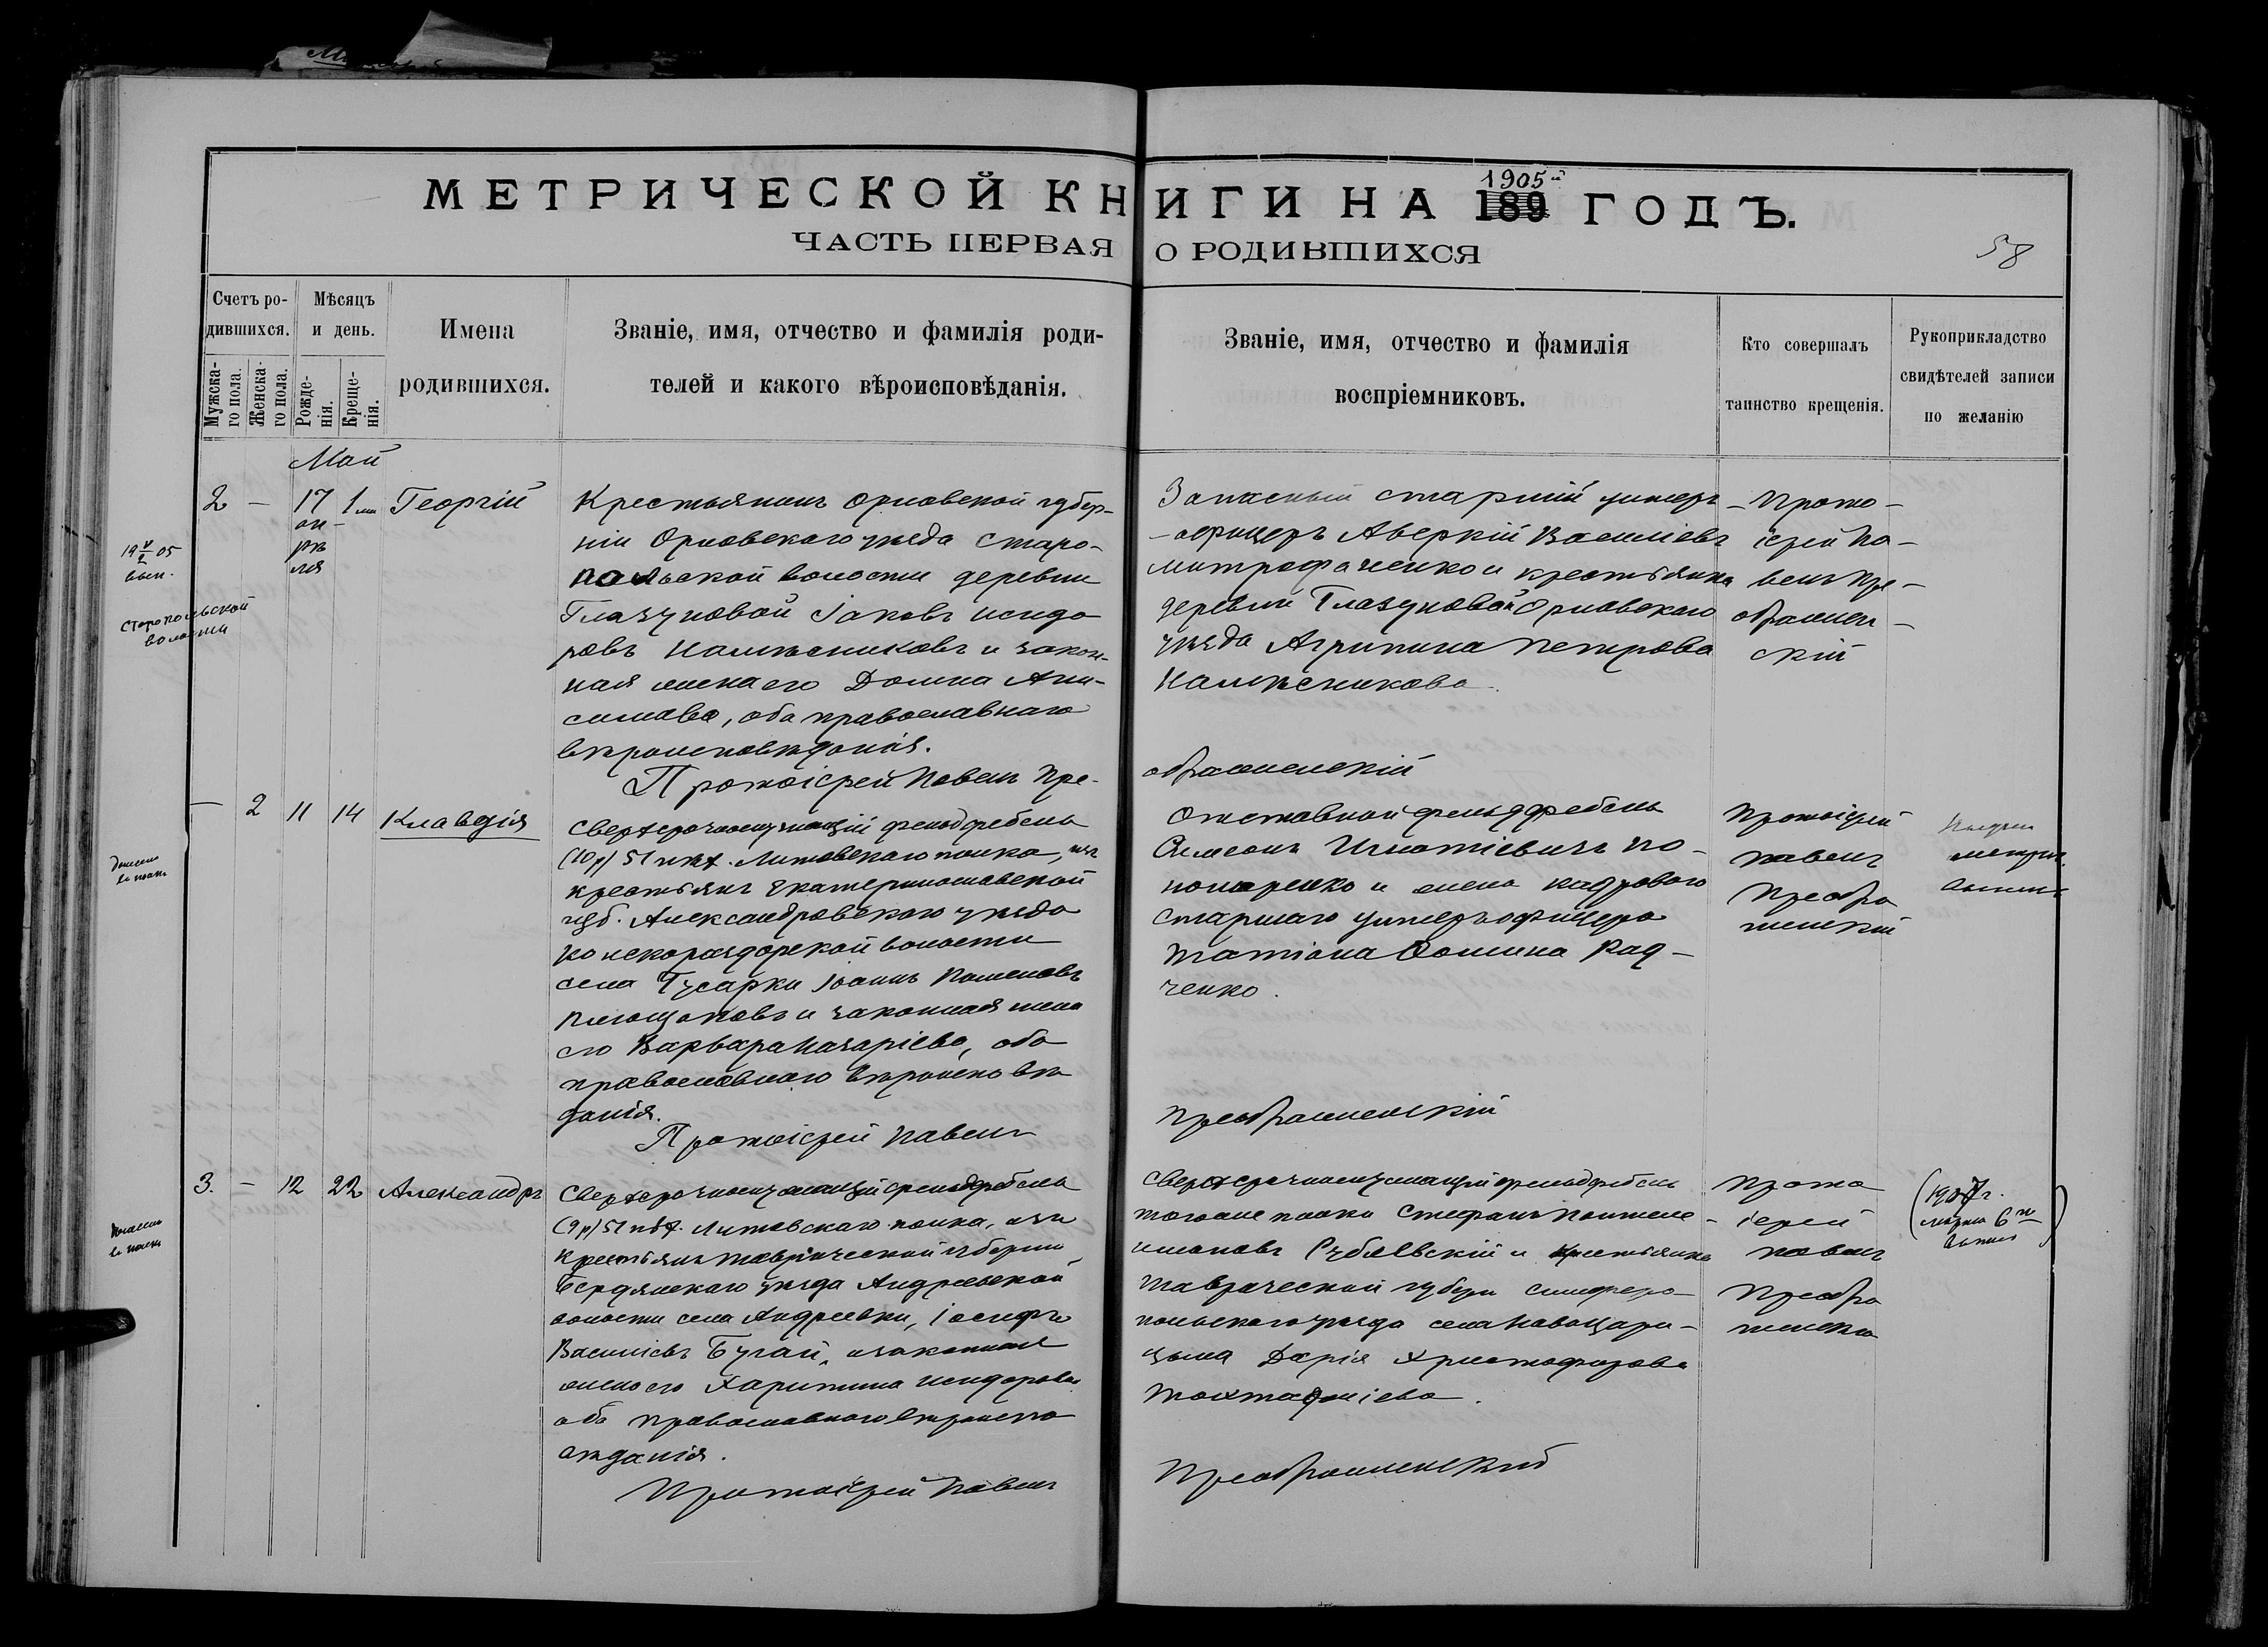 МЕТРИЧЕСКОЙ КНИГИ НА 1905й ГОДЪ.
ЧАСТЬ ПЕРВАЯ О РОДИВШИХСЯ
58
Счетъ ро-
дившихся.
Мужска-
го пола.
Женска-
го пола.
Мѣсяцъ
и день.
Рожде-
нія.
Креще-
нія.
Имена
родившихся.
Званіе, имя, отчество и фамилія роди-
телей и какого вѣроисповѣданія.
Званіе, имя, отчество и фамилія
воспріемниковъ.
Кто совершалъ
таинство крещенія.
Рукоприкладство
свидѣтелей записи
по желанію
Май
2 — 17 1 Георгій
ап-
рѣ
ля
19 V 05
вып.
Старопольской
волости
Крестьянинъ Орловской губер-
ніи Орловскаго уѣзда Старо-
польской волости деревни
Глазуновой Іаковъ Исидо
ровъ Налѣсниковъ и закон-
ная жена его Домна Ани-
симова, оба православнаго
вѣроисповѣданія.
Протоіерей Павелъ Пре-
ображенскій
Запасный старшій унтеръ-
-офицеръ Аверкій Василіевъ
Митрофаненко и крестьянка
деревни Глазуновой Орловскаго
уѣзда Агрипина Петрова
Налѣсникова.
Прото-
іерей Па-
велъ Пре-
ображен-
скій
— 2 11 14 Клавдія
Сверхсрочнослужащій фельдфебель
(10 р) 51 пѣх. Литовскаго полка, изъ
крестьянъ Екатеринославской
губ. Александровскаго уѣзда
Конскораздорской волости
села Гусарки Іоаннъ
и законная жена
его Варвара Назаріева, оба
православнаго вѣроисповѣ
данія.
Протоіерей Павелъ
Преображенскій
Отставной фельдфебель
Симеонъ Игнатіевичъ По-
номаренко и жена кадроваго
старшаго унтеръ-офицера
Татіана Фомина Рад-
ченко.
Протоіерей
Павелъ
Преобра
женскій
3. — 12 22 Александръ
Сверхсрочнослужащій фельдфебель
(9 р) 51 пѣх. Литовскаго полка, изъ
крестьянъ Таврической губерніи
Бердянскаго уѣзда Андреевской
волости села Андреевки, Іосифъ
Василіевъ Бугай, и законная
жена его Харитина Исидорова
оба православнаго вѣроиспо
вѣданія.
Протоіерей Павелъ
Преображенскій
Сверхсрочнослужащій фельдфебель
тогоже полка Стефанъ Пантеле-
имоновъ и крестьянка
Таврической губерн Симферо-
польскаго уѣзда села
Дарія Христофорова
Прото
іерей
Павелъ
Преобра
женскій
(1907 г.
марта 6